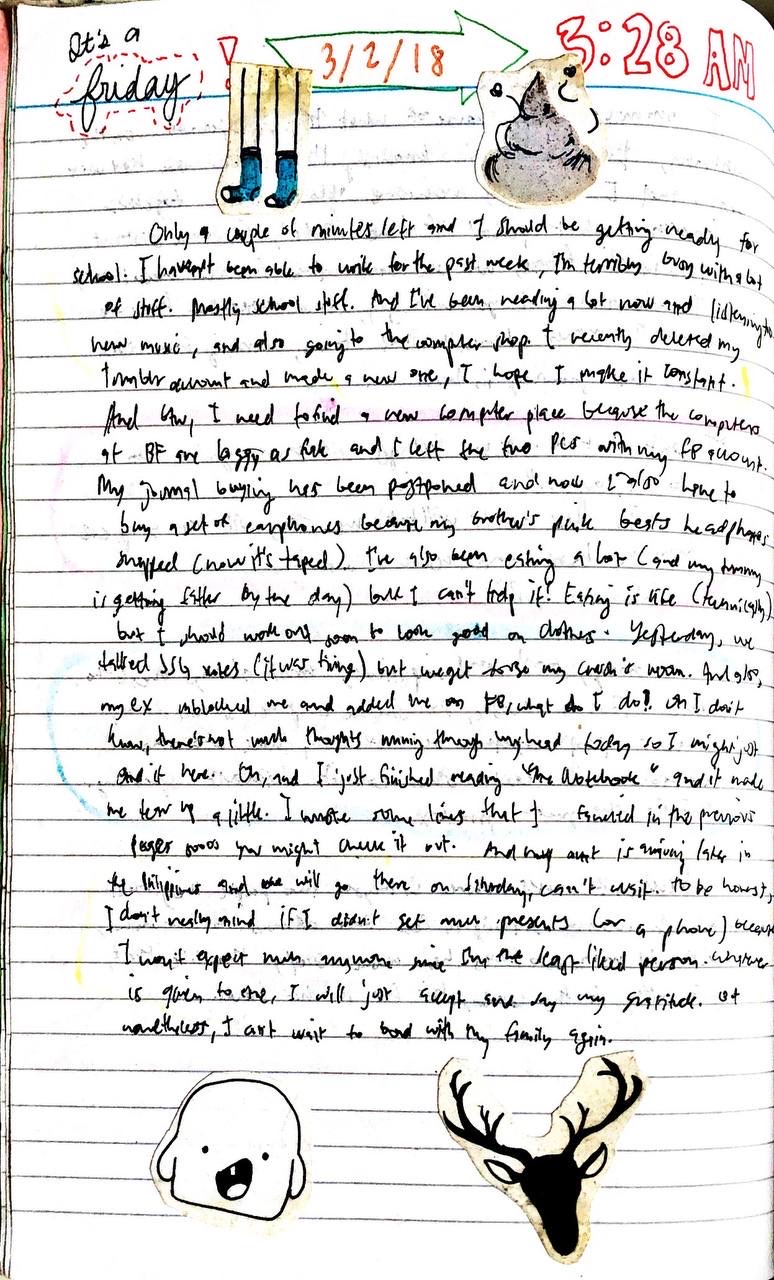 It's a
friday!
3/2/18
3:28 AM
Only a couple of minutes left and I should be getting ready for
school. I haven't been able to write for the past week, I'm terribly busy with a lot
of stuff. Mostly school stuff. And I've been reading a lot now and listening to
new music, and also going to the computer shop. I recently deleted my
tumblr account and made a new one, I hope I make it constant.
And btw, I need to find a new computer place because the computers
at BF are laggy as fuk and I left the two PCs with my FB account.
My journal buying has been postponed and now I also have to
buy a set of earphones because my brother's pink beats headphones
snapped (now it's taped). I've also been eating a lot (and my tummy
is getting fatter by the day) but I can't help it! Eating is life (technically)
but I should work out soon to look good on clothes. Yesterday, we
tallied SSG votes (it was tiring) but we get to go my crush's room. And also,
my ex unblocked me and added me on FB, what do I do? Oh I don't
know, there's not much thoughts running through my head today so I might just
end it here. Oh, and I just finished reading "The Notebook" and it made
me tear up a little. I wrote some lines that I in the previous
pages so you might check it out. And my aunt is arriving later in
the Philippines and we will go there on Saturday, can't wait. To be honest,
I don't really mind if I didn't get much presents (or a phone) because
I won't expect much anymore since I'm the least liked person. Whatever
is given to me, I will just accept and say my gratitude.
nonetheless, I can't wait to bond with my family again.